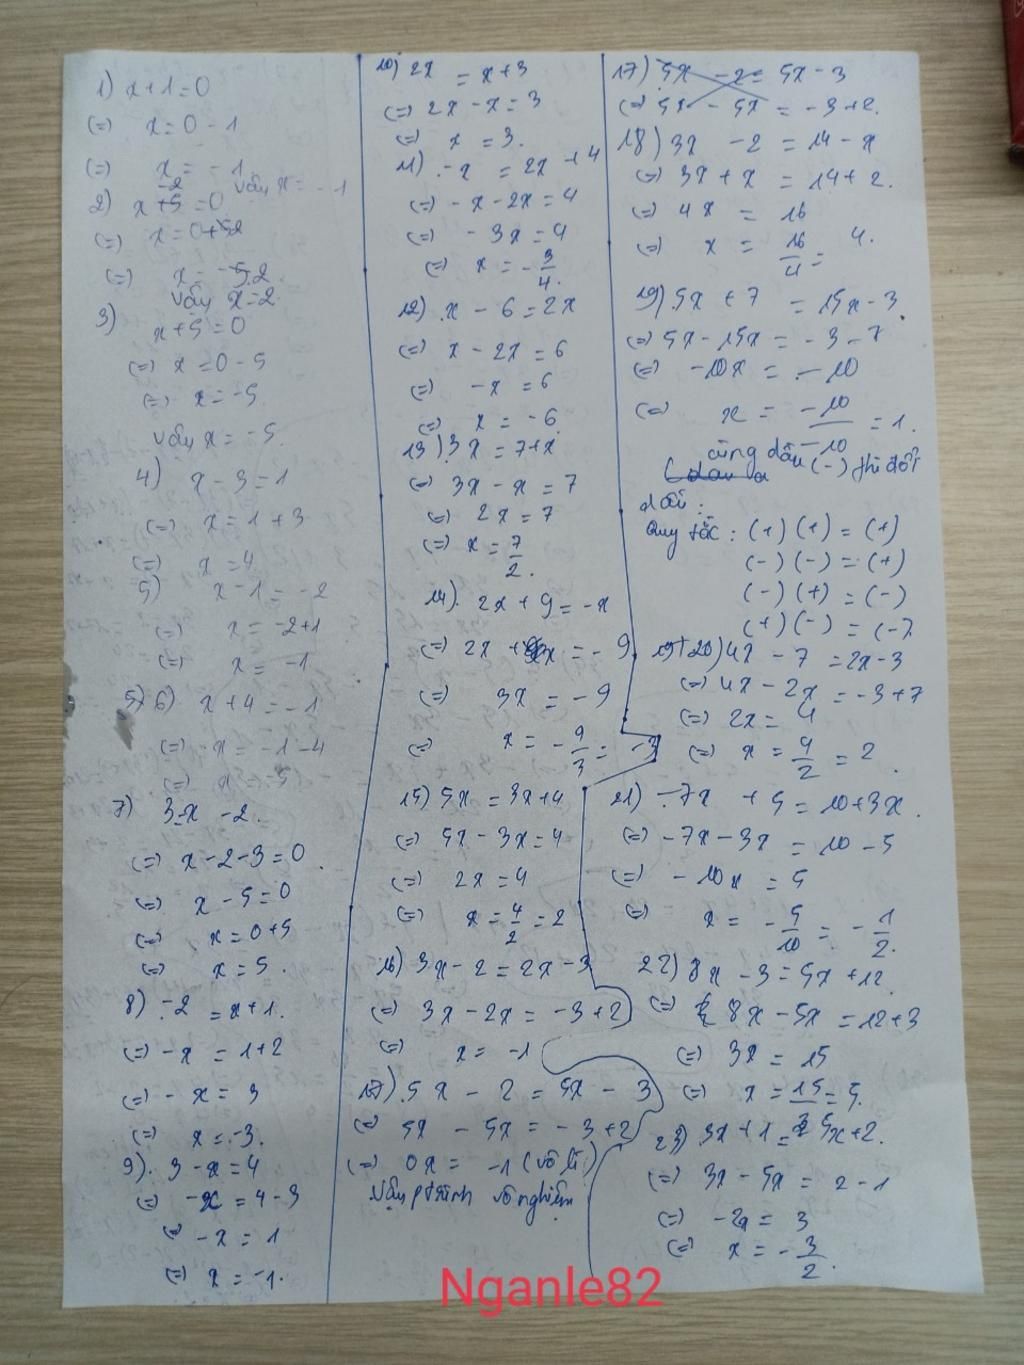 1) x+1=0
(=) x=0-1
(=) x=-1
Vậy x=-1
2) x-2=0
(=) x=0+2
(=) x=2
Vậy x=2
3) x+5=0
(=) x=0-5
(=) x=-5
Vậy x=-5.
4) x-3=1
(=) x=1+3
(=) x=4
5) x-1=-2
(=) x=-2+1
(=) x=-1
5) 6) x+4=-1
(=) x=-1-4
(=) x=-5
7) 3=x-2.
(=) x-2-3=0.
(=) x-5=0
(=) x=0+5
(=) x=5.
8) -2=x+1.
(=) -x=1+2
(=) -x=3
(=) x=-3.
9) 3-x=4
(=) -x=4-3
(=) -x=1
(=) x=-1.
10) 2x=x+3
(=) 2x-x=3
(=) x=3.
11) -x=2x+4
(=) -x-2x=4
(=) -3x=4
(=) x=-3/4.
12) x-6=2x
(=) x-2x=6
(=) -x=6
(=) x=-6
13) 3x=7+x
(=) 3x-x=7
(=) 2x=7
(=) x=7/2.
14) 2x+9=-x
(=) 2x+x=-9
(=) 3x=-9
(=) x=-9/3=-3
15) 5x=3x+4
(=) 5x-3x=4
(=) 2x=4
(=) x=4/2=2
16) 3x-2=2x-3
(=) 3x-2x=-3+2
(=) x=-1
17) 5x-2=5x-3
(=) 5x-5x=-3+2
(=) 0x=-1 (vô lí)
Vậy ptrình vô nghiệm
17) 5x-2=5x-3
(=) 5x-5x=-3+2.
18) 3x-2=14-x
(=) 3x+x=14+2.
(=) 4x=16
(=) x=16/4=4.
19) 5x+7=15x-3.
(=) 5x-15x=-3-7
(=) -10x=-10
(=) x=-10/-10=1.
cùng dấu (-) thì đổi
dấu:
Quy tắc: (+)(+)=(+)
(-)(-)=(+)
(-)(+)=(-)
(+)(-)=(-).
20) 4x-7=2x-3
(=) 4x-2x=-3+7
(=) 2x=4
(=) x=4/2=2.
21) -7x+5=10+3x.
(=) -7x-3x=10-5
(=) -10x=5
(=) x=-5/10=-1/2.
22) 8x-3=5x+12
(=) 8x-5x=12+3
(=) 3x=15
(=) x=15/3=5.
23) 3x+1=5x+2.
(=) 3x-5x=2-1
(=) -2x=3
(=) x=-3/2.
Nganle82